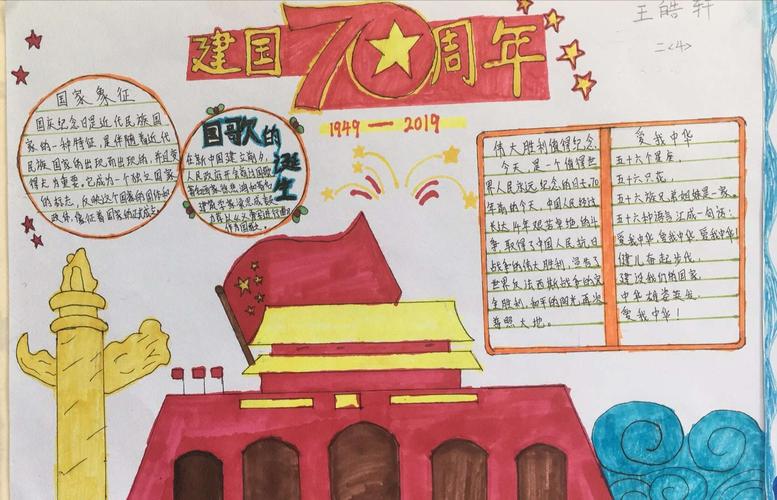 建国70周年
王皓轩
二<4>
1949—2019
国家象征
国庆纪念日是近代民族国
家的一种特征，是伴随着近代
民族国家的出现而出现的，并且变
得尤为重要。它成为一个独立国家
的标志，反映这个国家的国体和
政体，象征着国家的
国歌的诞生
在新中国建立前夕，
人民政府
伟大胜利值得纪念
今天，是一个值得世
界人民永远纪念的日子，70
年前的今天，中国人民经过
长达14年艰苦卓绝的斗
争，取得了中国人民抗日
战争的伟大胜利，宣告了
世界反法西斯战争的完
全胜利，和平的阳光再次
普照大地。
爱我中华
五十六个星座，
五十六只花，
五十六族兄弟姐妹是一家，
五十六种语言汇成一句话：
爱我中华 爱我中华 爱我中华！
健儿奋起步伐，
建设我们的国家，
中华雄姿英发，
爱我中华！